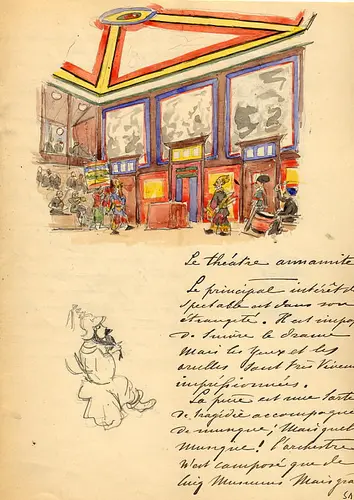 Le théatre annamite
Le principal intérêt d
spectable est dans son
étrangeté. Il est impos
de suivre le drame
mais les yeux et les
oreilles sont très vivem
impressionnées.
La pièce est une sorte
de tragédie accompagn
de musique; Mais quel
musique! l'orchestre
n'est composé que de
cinq Musiciens Mais gra